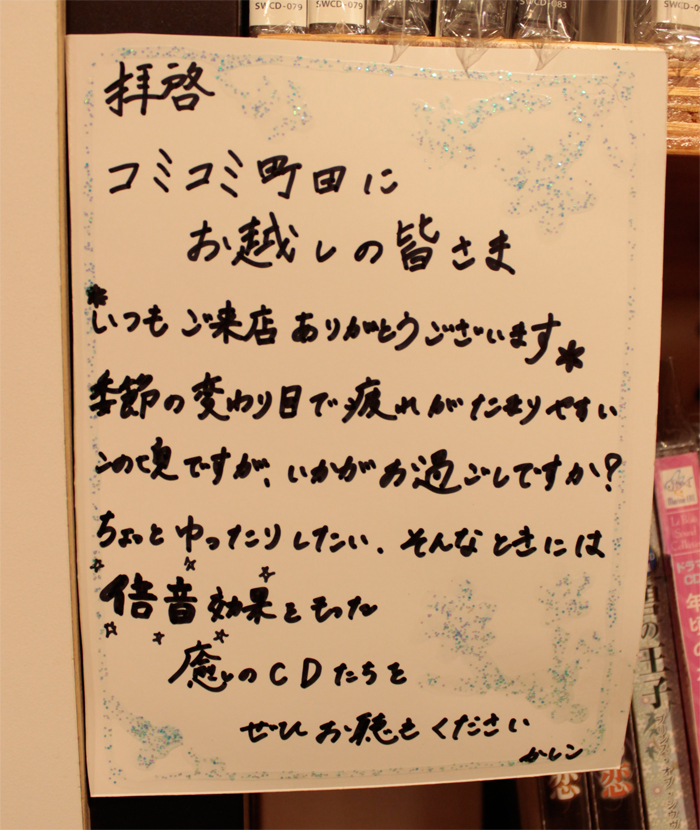 SWCD-079
SWCD-079
拝啓
コミコミ町田に
お越しの皆さま
*いつもご来店ありがとうございます*
季節の変わり目で疲れがたまりやすい
この頃ですが、いかがお過ごしですか?
ちょっとゆったりしたい、そんなときには
倍音効果をもった
癒しのCDたちを
ぜひお聴きください
かレン
の王子
ドラマ
恋
恋